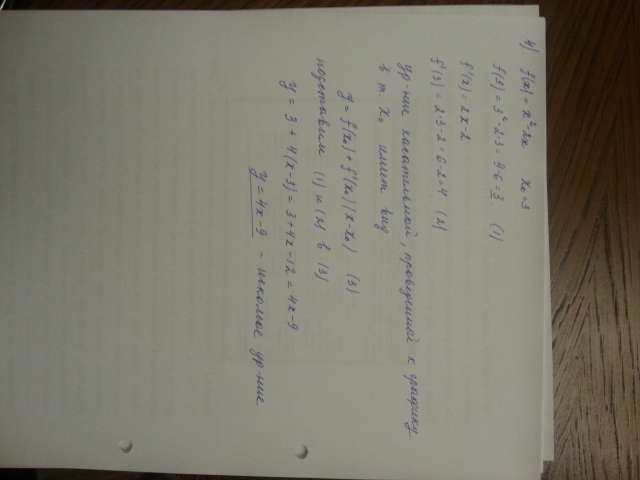 4) f(x) = x² - 2x x₀ = 3
f(3) = 3² - 2·3 = 9 - 6 = 3 (1)
f'(x) = 2x - 2
f'(3) = 2·3 - 2 = 6 - 2 = 4 (2)
ур-ние касательной, проведенной к графику
в т. x₀ имеет вид
y = f(x₀) + f'(x₀)(x - x₀) (3)
подставим (1) и (2) в (3)
y = 3 + 4(x - 3) = 3 + 4x - 12 = 4x - 9
y = 4x - 9 - искомое ур-ние